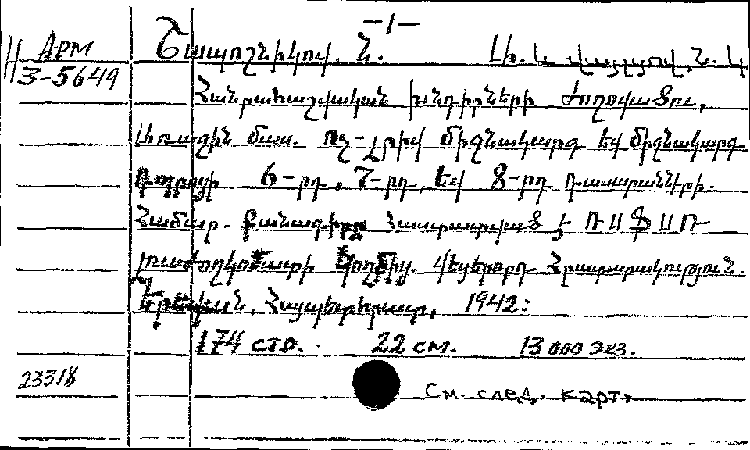 -1-
Арм
Շապոշնիկով, Ն. և Վալցով, Ն. Կ.
3-5649
Հանրահաշվական խնդիրների ժողովածու,
Առաջին մաս. ոչ-լրիվ միջնակարգ եվ միջնակարգ
դպրոցի 6-րդ, 7-րդ, եվ 8-րդ դասարանների
Համար. Հաստատված է ՌՍՖՍՌ
լուսժողկոմատի կողմից. Վեցերորդ Հրատարակություն.
Երեվան, Հայպետհրատ, 1942:
174 стр. 22 см. 13 000 экз.
23318
См. след. карт.